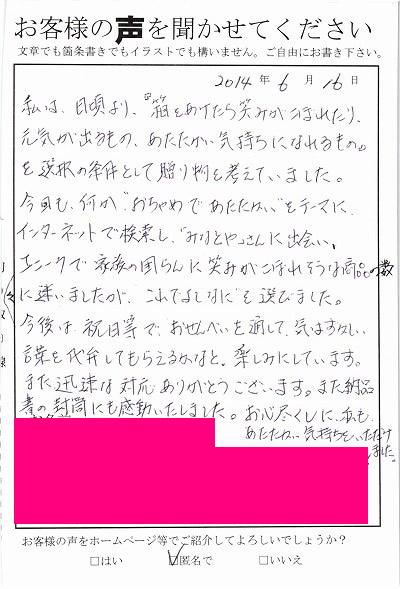 お客様の声を聞かせてください
文章でも箇条書きでもイラストでも構いません。ご自由にお書き下さい。
2014年 6月 16日
私は、日頃より、箱をあけたら笑みがこぼれたり、
元気が出るもの、あたたかい気持ちになれるもの。
を選択の条件として贈り物を考えていました。
今回も、何か"おちゃめであたたかい"をテーマに、
インターネットで検索し、"みなとや"さんに出会い、
ユニークで家族の団らんに笑みがこぼれそうな商品の数
々に迷いましたが、これを選びました。
今後は祝日等で、おせんべいを通して、気はずかしい
言葉を代弁してもらえるかなと、楽しみにしています。
また迅速な対応ありがとうございます。また納品
書の封筒にも感動いたしました。お心尽くしに、私も
あたたかい気持ちをいただけ
ました。
お客様の声をホームページ等でご紹介してよろしいでしょうか？
□はい □匿名で □いいえ